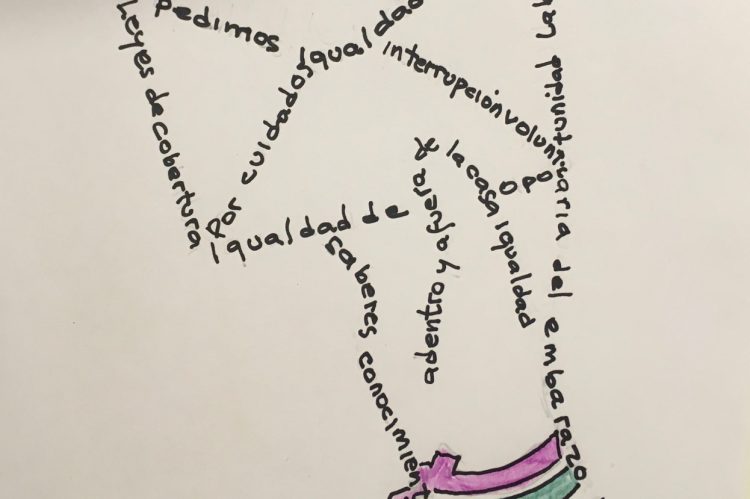 Leyes de cobertura
pedimos igualdad
por cuidados
interrupción voluntaria del embarazo
igualdad de
saberes conocimient
adentro y afuera
de la casa igualdad